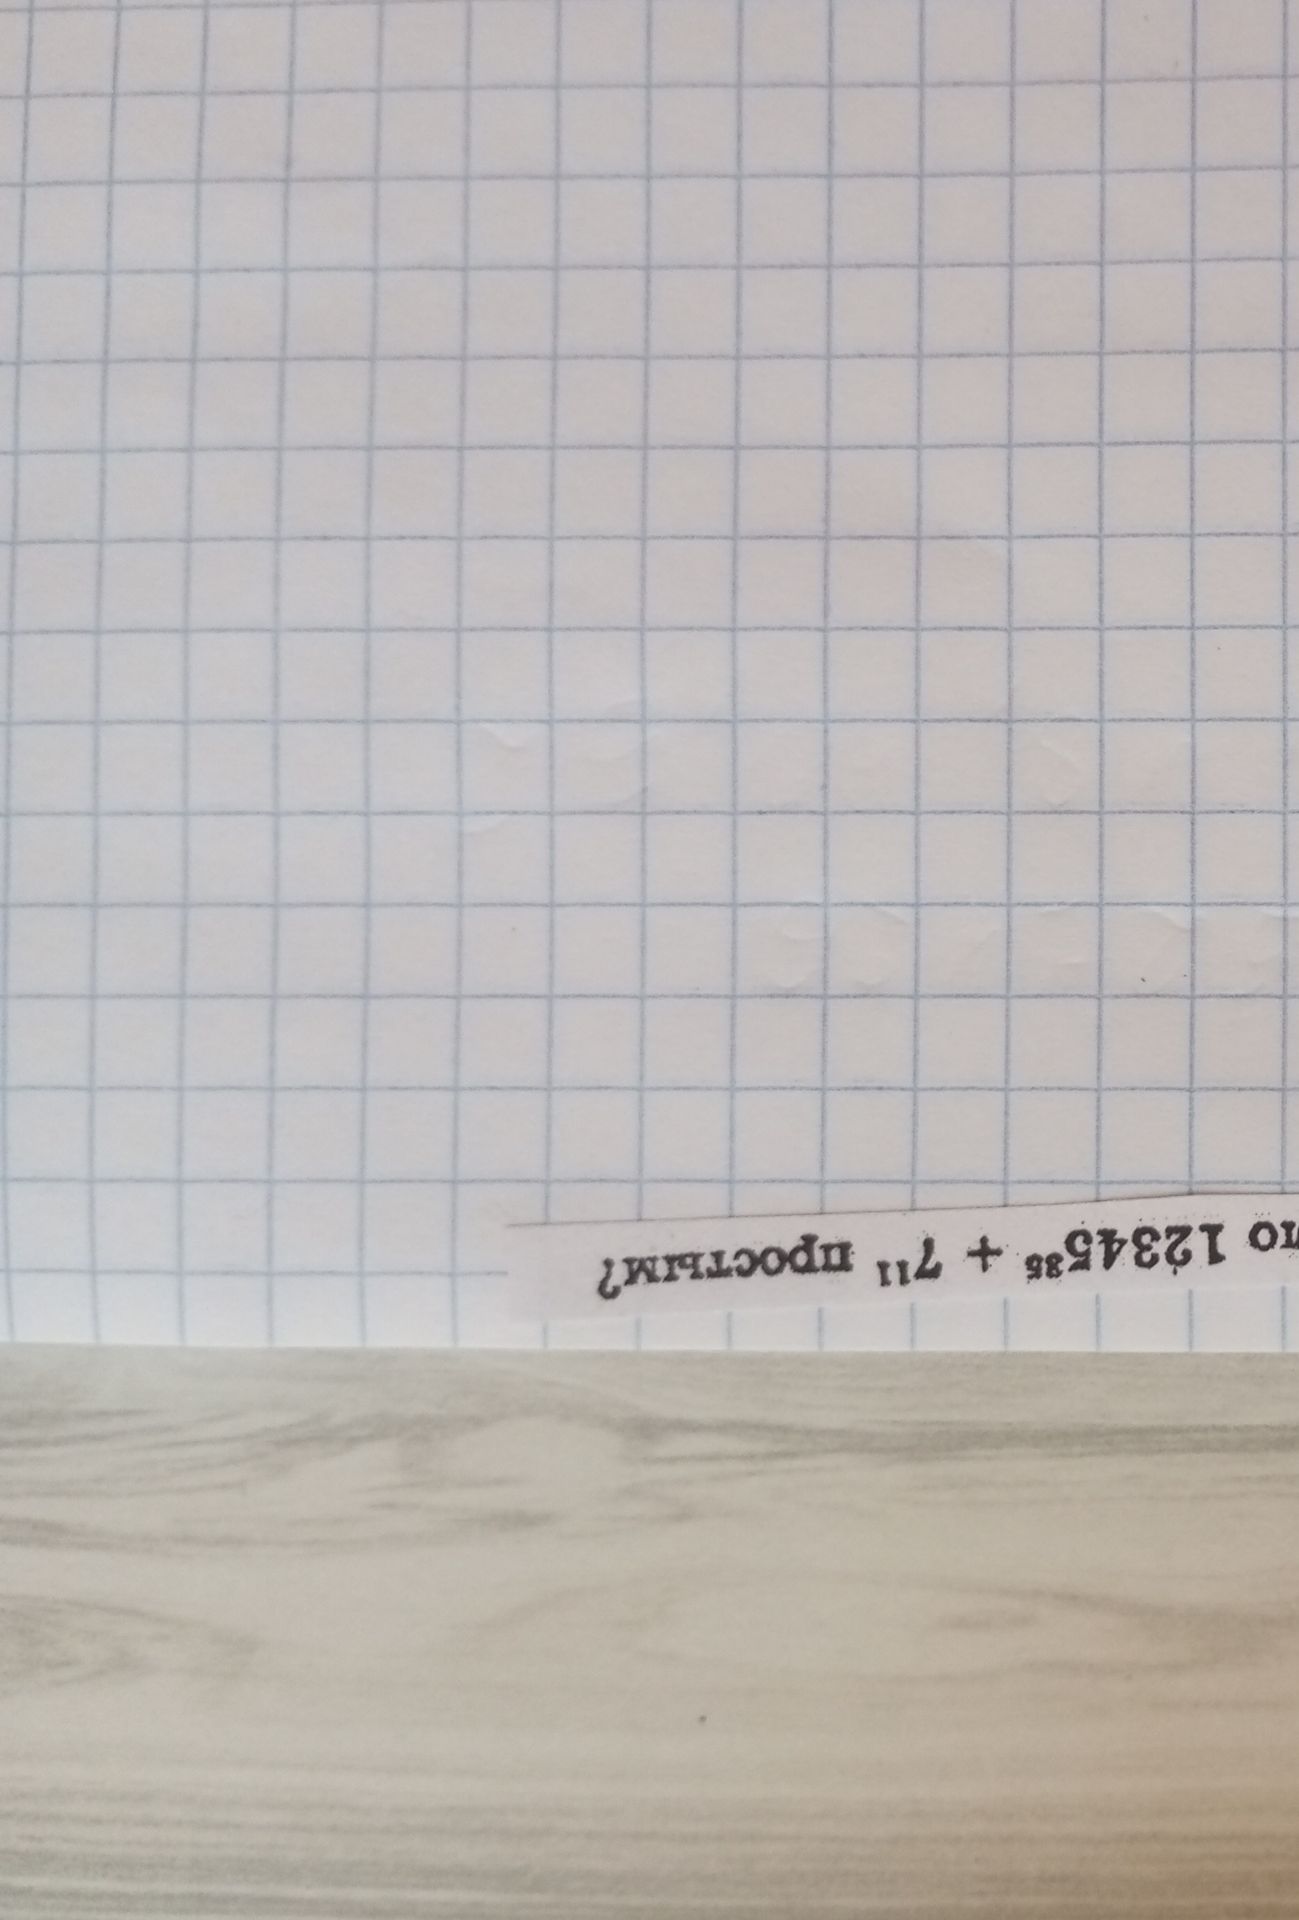 ло 12345³⁵ + 7¹¹ простым?